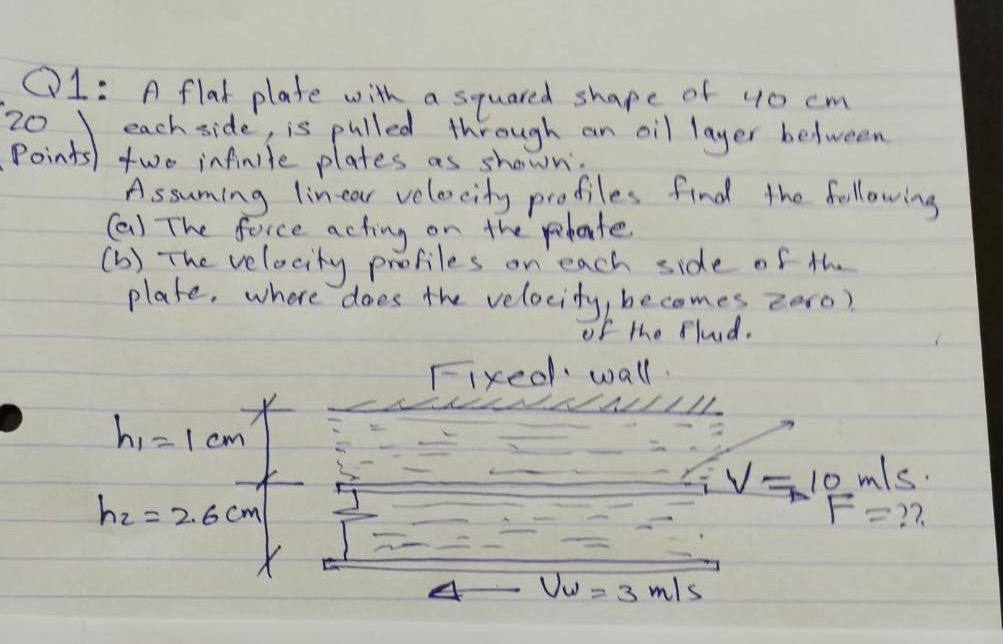 Q1: A flat plate with a squared shape of 40 cm
20 Points) each side, is pulled through an oil layer between
two infinite plates as shown.
Assuming linear velocity profiles find the following
(a) The force acting on the plate
(b) The velocity profiles on each side of the
plate. where does the velocity, becomes zero?
of the fluid.
Fixed wall.
h1 = 1 cm
V = 10 m/s.
h2 = 2.6 cm
F = ??
Vw = 3 m/s